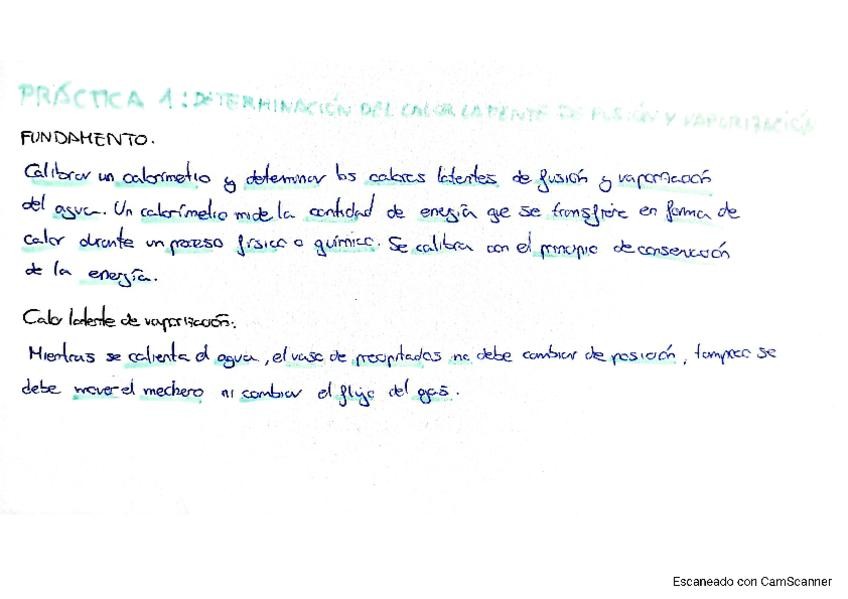 PRÁCTICA 1: DETERMINACIÓN DEL CALOR LATENTE DE FUSIÓN Y VAPORIZACIÓN
FUNDAMENTO.
Calibrar un calorímetro y determinar los calores latentes de fusión y vaporización
del agua. Un calorímetro mide la cantidad de energía que se transfiere en forma de
calor durante un proceso físico o químico. Se calibra con el principio de conservación
de la energía.
Calor latente de vaporización:
Mientras se calienta el agua, el vaso de precipitados no debe cambiar de posición, tampoco se
debe mover el mechero ni cambiar el flujo del gas.
Escaneado con CamScanner